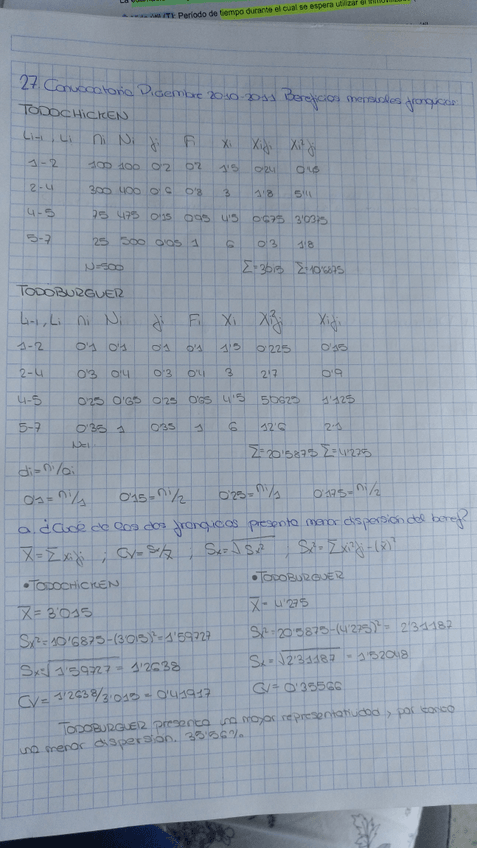 (T): Período de tiempo durante el cual se espera utilizar el
27. Convocatoria Diciembre 2010-2011 Beneficios mensuales franquicias
TODOCHICKEN
Li-1, Li ni Ni fi Fi xi xifi xi²fi
1-2 100 100 0'2 0'2 1'5
2-4 300 400 0'6 0'8 3 1'8
4-5 75 475 0'15 0'95 4'5 0'675 3'0375
5-7 25 500 0'05 1 6 0'3 1'8
N=500 Σ=3'015 Σ=10'6875
TODOBURGUER
Li-1, Li ni Ni fi Fi xi xi²fi xifi
1-2 0'1 0'1 0'1 0'1 1'5 0'225 0'15
2-4 0'3 0'4 0'3 0'4 3 2'7 0'9
4-5 0'25 0'65 0'25 0'65 4'5 5'0625 1'125
5-7 0'35 1 0'35 1 6 12'6 2'1
N=1 Σ=20'5875 Σ=4'275
di=ni/ai
0'1=ni/1 0'15=ni/2 0'25=ni/1 0'175=ni/2
a. ¿Cuál de las dos franquicias presenta menor dispersion dos benef?
X̄=Σxifi ; CV=S/X̄ , Sx=√Sx² , Sx²=Σxi²fi-(x̄)²
•TODOCHICKEN •TODOBURGUER
X̄=3'015 X̄=4'275
Sx²=10'6875-(3'015)²=1'59727 Sx²=20'5875-(4'275)²= 2'31187
Sx=√1'59727=1'2638 Sx=√2'31187=1'52048
CV=1'2638/3'015=0'41917 CV=0'35566
TODOBURGUER presenta una mayor representatividad, por tanto
una menor dispersion. 35'56%